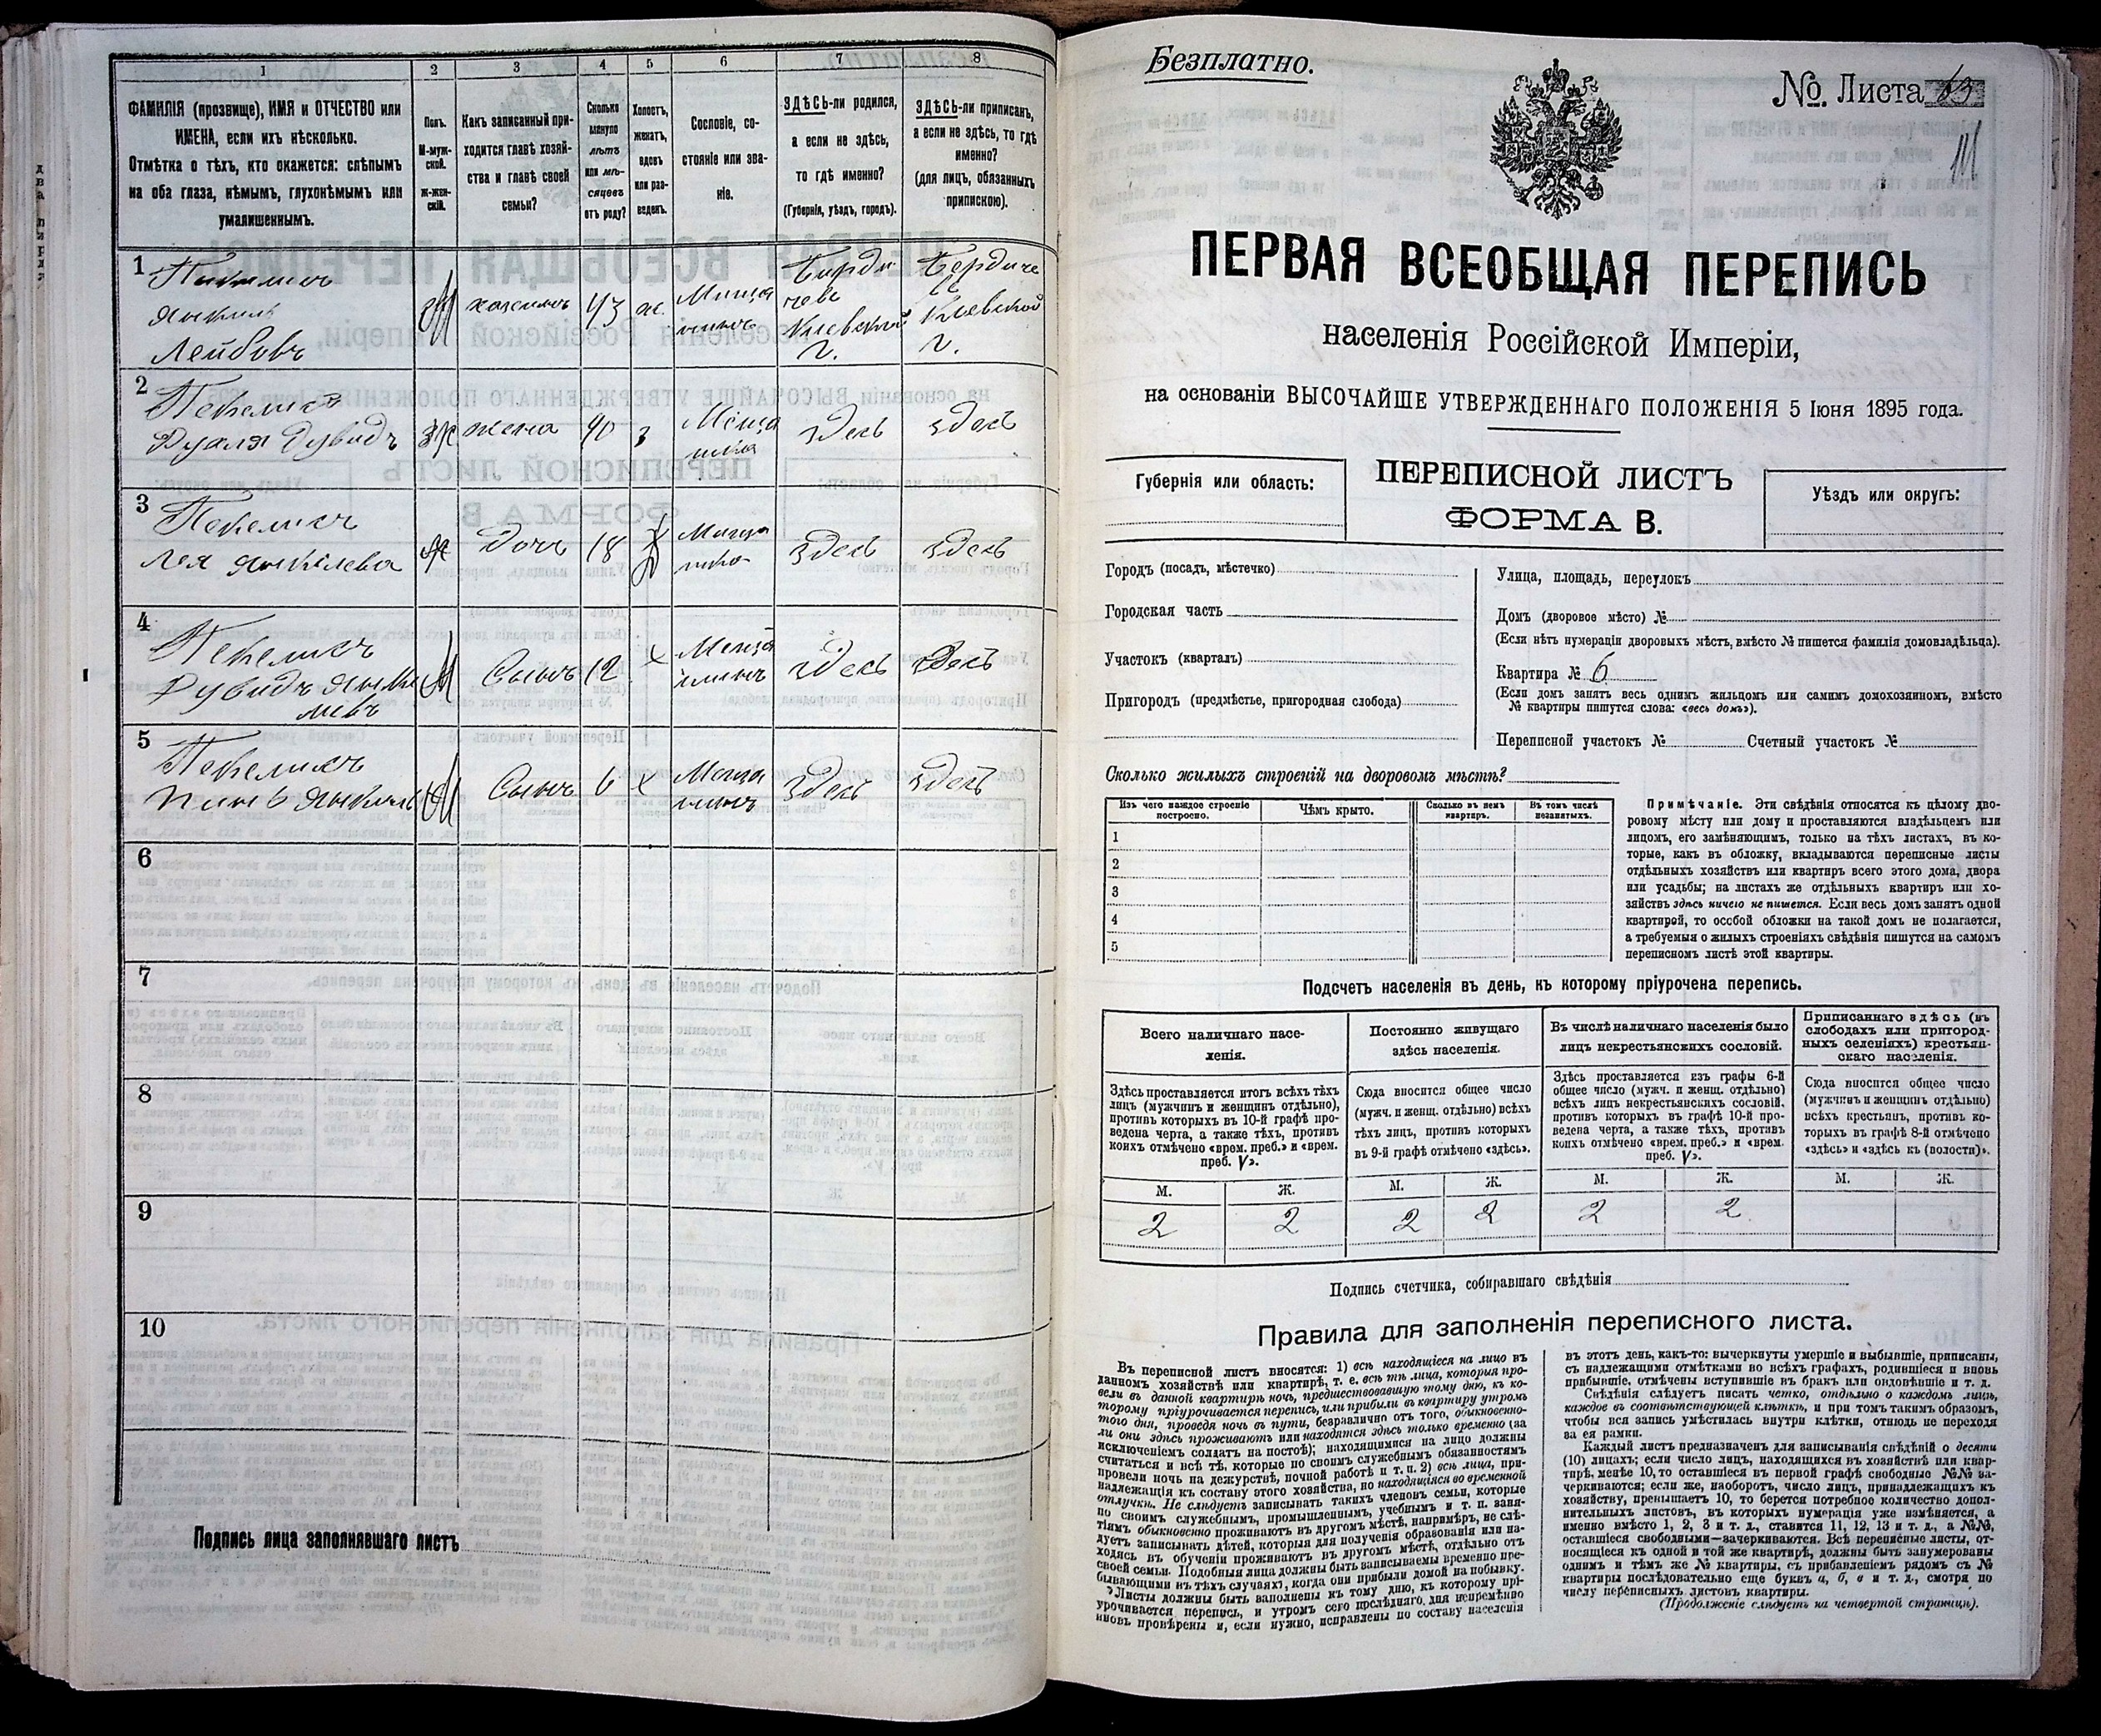 1
2
3
4
5
6
7
8
ФАМИЛІЯ (прозвище), ИМЯ и ОТЧЕСТВО или
ИМЕНА, если ихъ нѣсколько.
Отмѣтка о тѣхъ, кто окажется: слѣпымъ
на оба глаза, нѣмымъ, глухонѣмымъ или
умалишеннымъ.
Полъ.
М-муж-
ской.
Ж-жен-
скій.
Какъ записанный при-
ходится главѣ хозяй-
ства и главѣ своей
семьи?
Сколько
минуло
лѣтъ
или мѣ-
сяцевъ
отъ роду?
Холостъ,
женатъ,
вдовъ
или раз-
веденъ.
Сословіе, со-
стояніе или зва-
ніе.
ЗДѢСЬ-ли родился,
а если не здѣсь,
то гдѣ именно?
(Губернія, уѣздъ, городъ).
ЗДѢСЬ-ли приписанъ,
а если не здѣсь, то гдѣ
именно?
(для лицъ, обязанныхъ
припискою).
1
Лейбовъ
М
43
Киевской
г.
Бердиче
Киевской
г.
2
Пекелисъ
жена
40
з
здесь
здесь
3
Пекелисъ
Лея Янкелева
дочь
18
здесь
здесь
4
Пекелисъ
М
Сынъ
12
х
здесь
здесь
5
Пекелисъ
М
Сынъ
6
х
здесь
здесь
6
7
8
9
10
Подпись лица заполнявшаго листъ
Безплатно.
№. Листа 63
ПЕРВАЯ ВСЕОБЩАЯ ПЕРЕПИСЬ
населенія Россійской Имперіи,
на основаніи ВЫСОЧАЙШЕ УТВЕРЖДЕННАГО ПОЛОЖЕНІЯ 5 Іюня 1895 года.
Губернія или область:
ПЕРЕПИСНОЙ ЛИСТЪ
ФОРМА В.
Уѣздъ или округъ:
Городъ (посадъ, мѣстечко)
Городская часть
Участокъ (кварталъ)
Пригородъ (предмѣстье, пригородная слобода)
Улица, площадь, переулокъ
Домъ (дворовое мѣсто) №
(Если нѣтъ нумераціи дворовыхъ мѣстъ, вмѣсто № пишется фамилія домовладѣльца).
Квартира № 6
(Если домъ занятъ весь однимъ жильцомъ или самимъ домохозяиномъ, вмѣсто
№ квартиры пишутся слова: «весь домъ»).
Переписной участокъ № Счетный участокъ №
Сколько жилыхъ строеній на дворовомъ мѣстѣ?
Изъ чего каждое строеніе
построено.
Чѣмъ крыто.
Сколько въ немъ
квартиръ.
Въ томъ числѣ
незанятыхъ.
1
2
3
4
5
Примѣчаніе. Эти свѣдѣнія относятся къ цѣлому дво-
ровому мѣсту или дому и проставляются владѣльцемъ или
лицомъ, его замѣняющимъ, только на тѣхъ листахъ, въ ко-
торые, какъ въ обложку, вкладываются переписные листы
отдѣльныхъ хозяйствъ или квартиръ всего этого дома, двора
или усадьбы; на листахъ же отдѣльныхъ квартиръ или хо-
зяйствъ здѣсь ничего не пишется. Если весь домъ занятъ одной
квартирой, то особой обложки на такой домъ не полагается,
а требуемыя о жилыхъ строеніяхъ свѣдѣнія пишутся на самомъ
переписномъ листѣ этой квартиры.
Подсчетъ населенія въ день, къ которому пріурочена перепись.
Всего наличнаго насе-
ленія.
Здѣсь проставляется итогъ всѣхъ тѣхъ
лицъ (мужчинъ и женщинъ отдѣльно),
противъ которыхъ въ 10-й графѣ про-
ведена черта, а также тѣхъ, противъ
коихъ отмѣчено «врем. преб.» и «врем.
преб. V».
Постоянно живущаго
здѣсь населенія.
Сюда вносится общее число
(мужч. и женщ. отдѣльно) всѣхъ
тѣхъ лицъ, противъ которыхъ
въ 9-й графѣ отмѣчено «здѣсь».
Въ числѣ наличнаго населенія было
лицъ некрестьянскихъ сословій.
Здѣсь проставляется изъ графы 6-й
общее число (мужч. и женщ. отдѣльно)
всѣхъ лицъ некрестьянскихъ сословій,
противъ которыхъ въ графѣ 10-й про-
ведена черта, а также тѣхъ, противъ
коихъ отмѣчено «врем. преб.» и «врем.
преб. V».
Приписаннаго здѣсь (въ
слободахъ или пригород-
ныхъ селеніяхъ) крестьян-
скаго населенія.
Сюда вносится общее число
(мужчинъ и женщинъ отдѣльно)
всѣхъ крестьянъ, противъ ко-
торыхъ въ графѣ 8-й отмѣчено
«здѣсь» и «здѣсь къ (волости)».
М. Ж. М. Ж. М. Ж. М. Ж.
2 2 2 2 2 2
Подпись счетчика, собиравшаго свѣдѣнія
Правила для заполненія переписного листа.
Въ переписной листъ вносятся: 1) всѣ находящіеся на лицо въ
данномъ хозяйствѣ или квартирѣ, т. е. всѣ тѣ лица, которыя про-
вели въ данной квартирѣ ночь, предшествовавшую тому дню, къ ко-
торому пріурочивается перепись, или прибыли въ квартиру утромъ
того дня, проведя ночь въ пути, безразлично отъ того, обыкновенно-
ли они здѣсь проживаютъ или находятся здѣсь только временно (за
исключеніемъ солдатъ на постоѣ); находящимися на лицо должны
считаться и всѣ тѣ, которые по своимъ служебнымъ обязанностямъ
провели ночь на дежурствѣ, ночной работѣ и т. п. 2) всѣ лица, при-
надлежащія къ составу этого хозяйства, но находящіяся во временной
отлучкѣ. Не слѣдуетъ записывать такихъ членовъ семьи, которые
по своимъ служебнымъ, промышленнымъ, учебнымъ и т. п. заня-
тіямъ обыкновенно проживаютъ въ другомъ мѣстѣ, напримѣръ, не слѣ-
дуетъ записывать дѣтей, которыя для полученія образованія или на-
ходясь въ обученіи проживаютъ въ другомъ мѣстѣ, отдѣльно отъ
своей семьи. Подобныя лица должны быть записываемы временно пре-
бывающими въ тѣхъ случаяхъ, когда они прибыли домой на побывку.
Листы должны быть заполнены къ тому дню, къ которому прі-
урочивается перепись, и утромъ сего послѣдняго дня непремѣнно
вновь провѣрены и, если нужно, исправлены по составу населенія
въ этотъ день, какъ-то: вычеркнуты умершіе и выбывшіе, приписаны,
съ надлежащими отмѣтками во всѣхъ графахъ, родившіеся и вновь
прибывшіе, отмѣчены вступившіе въ бракъ или овдовѣвшіе и т. д.
Свѣдѣнія слѣдуетъ писать четко, отдѣльно о каждомъ лицѣ,
каждое въ соотвѣтствующей клѣткѣ, и при томъ такимъ образомъ,
чтобы вся запись умѣстилась внутри клѣтки, отнюдь не переходя
за ея рамки.
Каждый листъ предназначенъ для записыванія свѣдѣній о десяти
(10) лицахъ; если число лицъ, находящихся въ хозяйствѣ или квар-
тирѣ, менѣе 10, то оставшіеся въ первой графѣ свободные №№ за-
черкиваются; если же, наоборотъ, число лицъ, принадлежащихъ къ
хозяйству, превышаетъ 10, то берется потребное количество допол-
нительныхъ листовъ, въ которыхъ нумерація уже измѣняется, а
именно вмѣсто 1, 2, 3 и т. д., ставится 11, 12, 13 и т. д., а №№,
оставшіеся свободными—зачеркиваются. Всѣ переписные листы, от-
носящіеся къ одной и той же квартирѣ, должны быть занумерованы
однимъ и тѣмъ же № квартиры, съ прибавленіемъ рядомъ съ №
квартиры послѣдовательно еще буквъ а, б, в и т. д., смотря по
числу переписныхъ листовъ квартиры.
(Продолженіе слѣдуетъ на четвертой страницѣ).